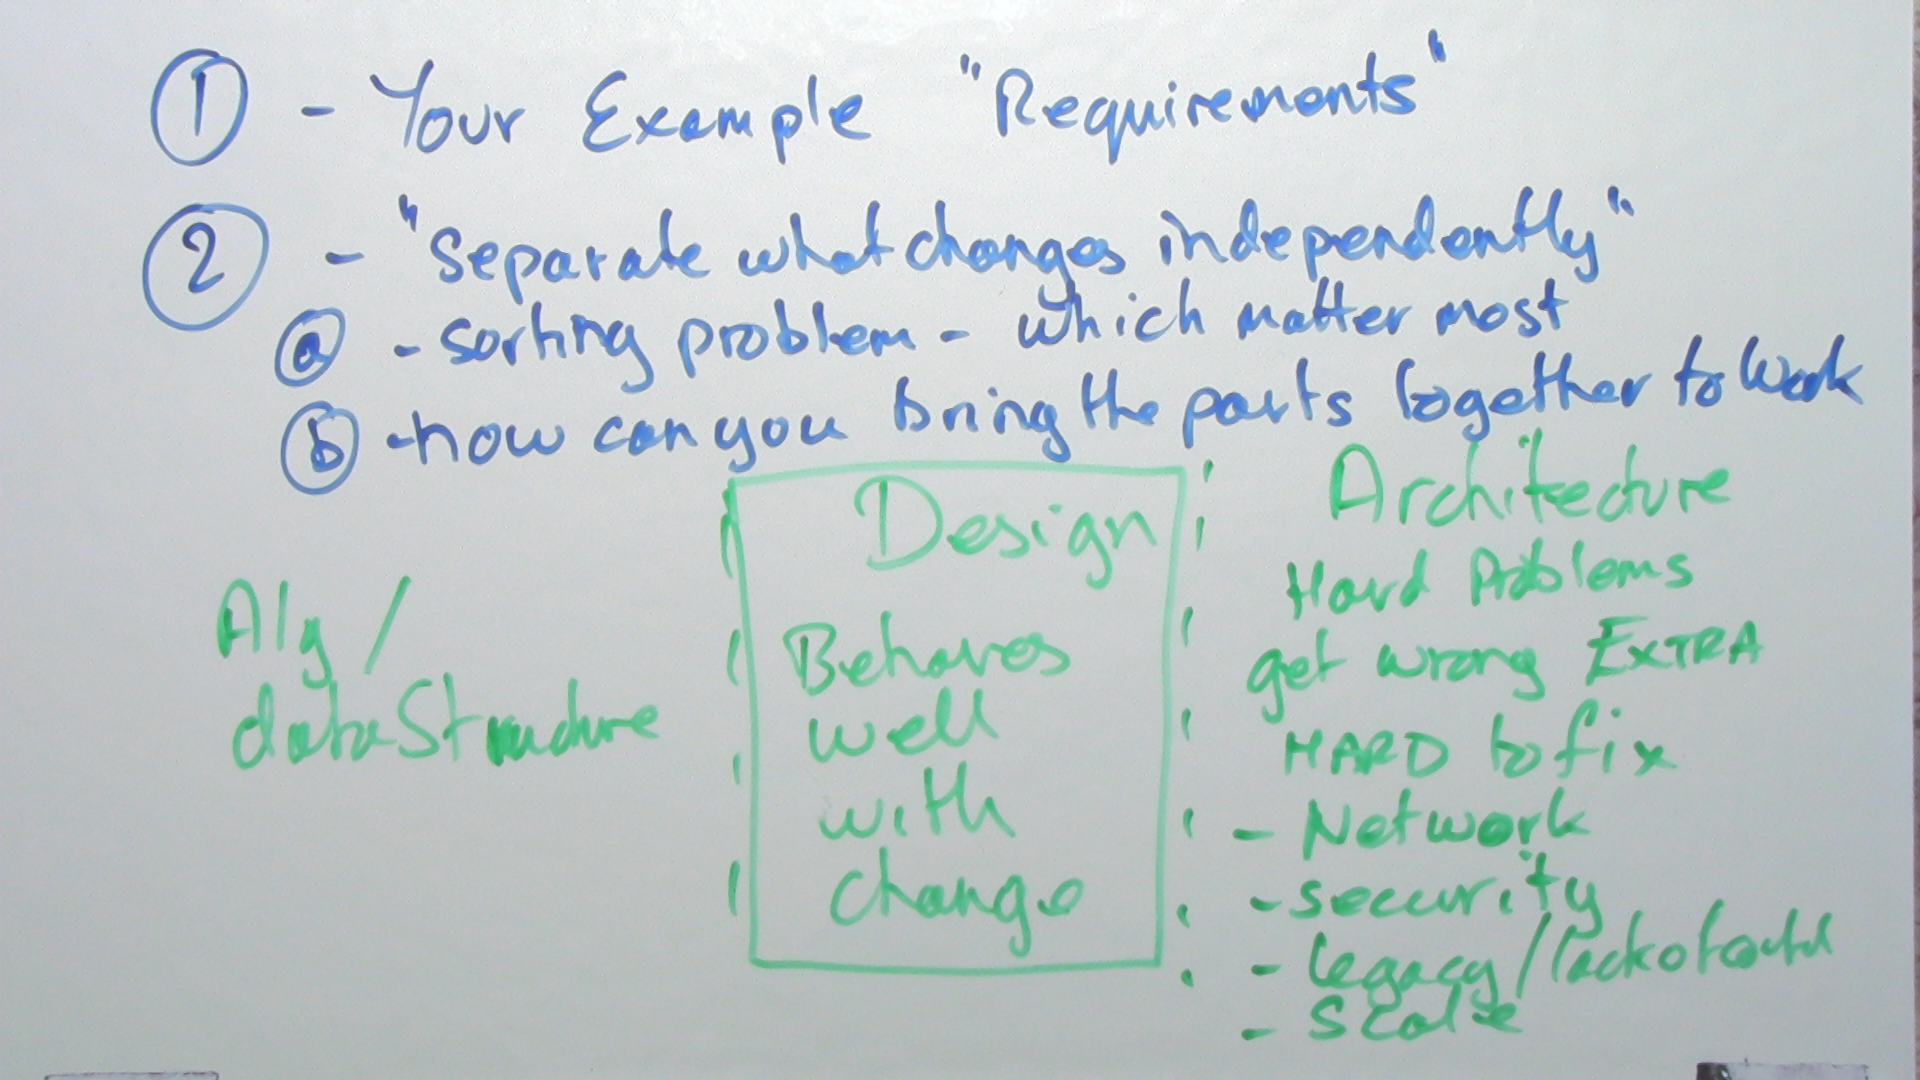 ① - Your Example "Requirements"
② - "Separate what changes independently"
ⓐ - sorting problem - which matter most
ⓑ - how can you bring the parts together to work
Alg /
dataStructure
Design
Behaves
well
with
change
Architecture
Hard Problems
get wrong EXTRA
HARD to fix
- Network
- security
- legacy / lack of
- Scale